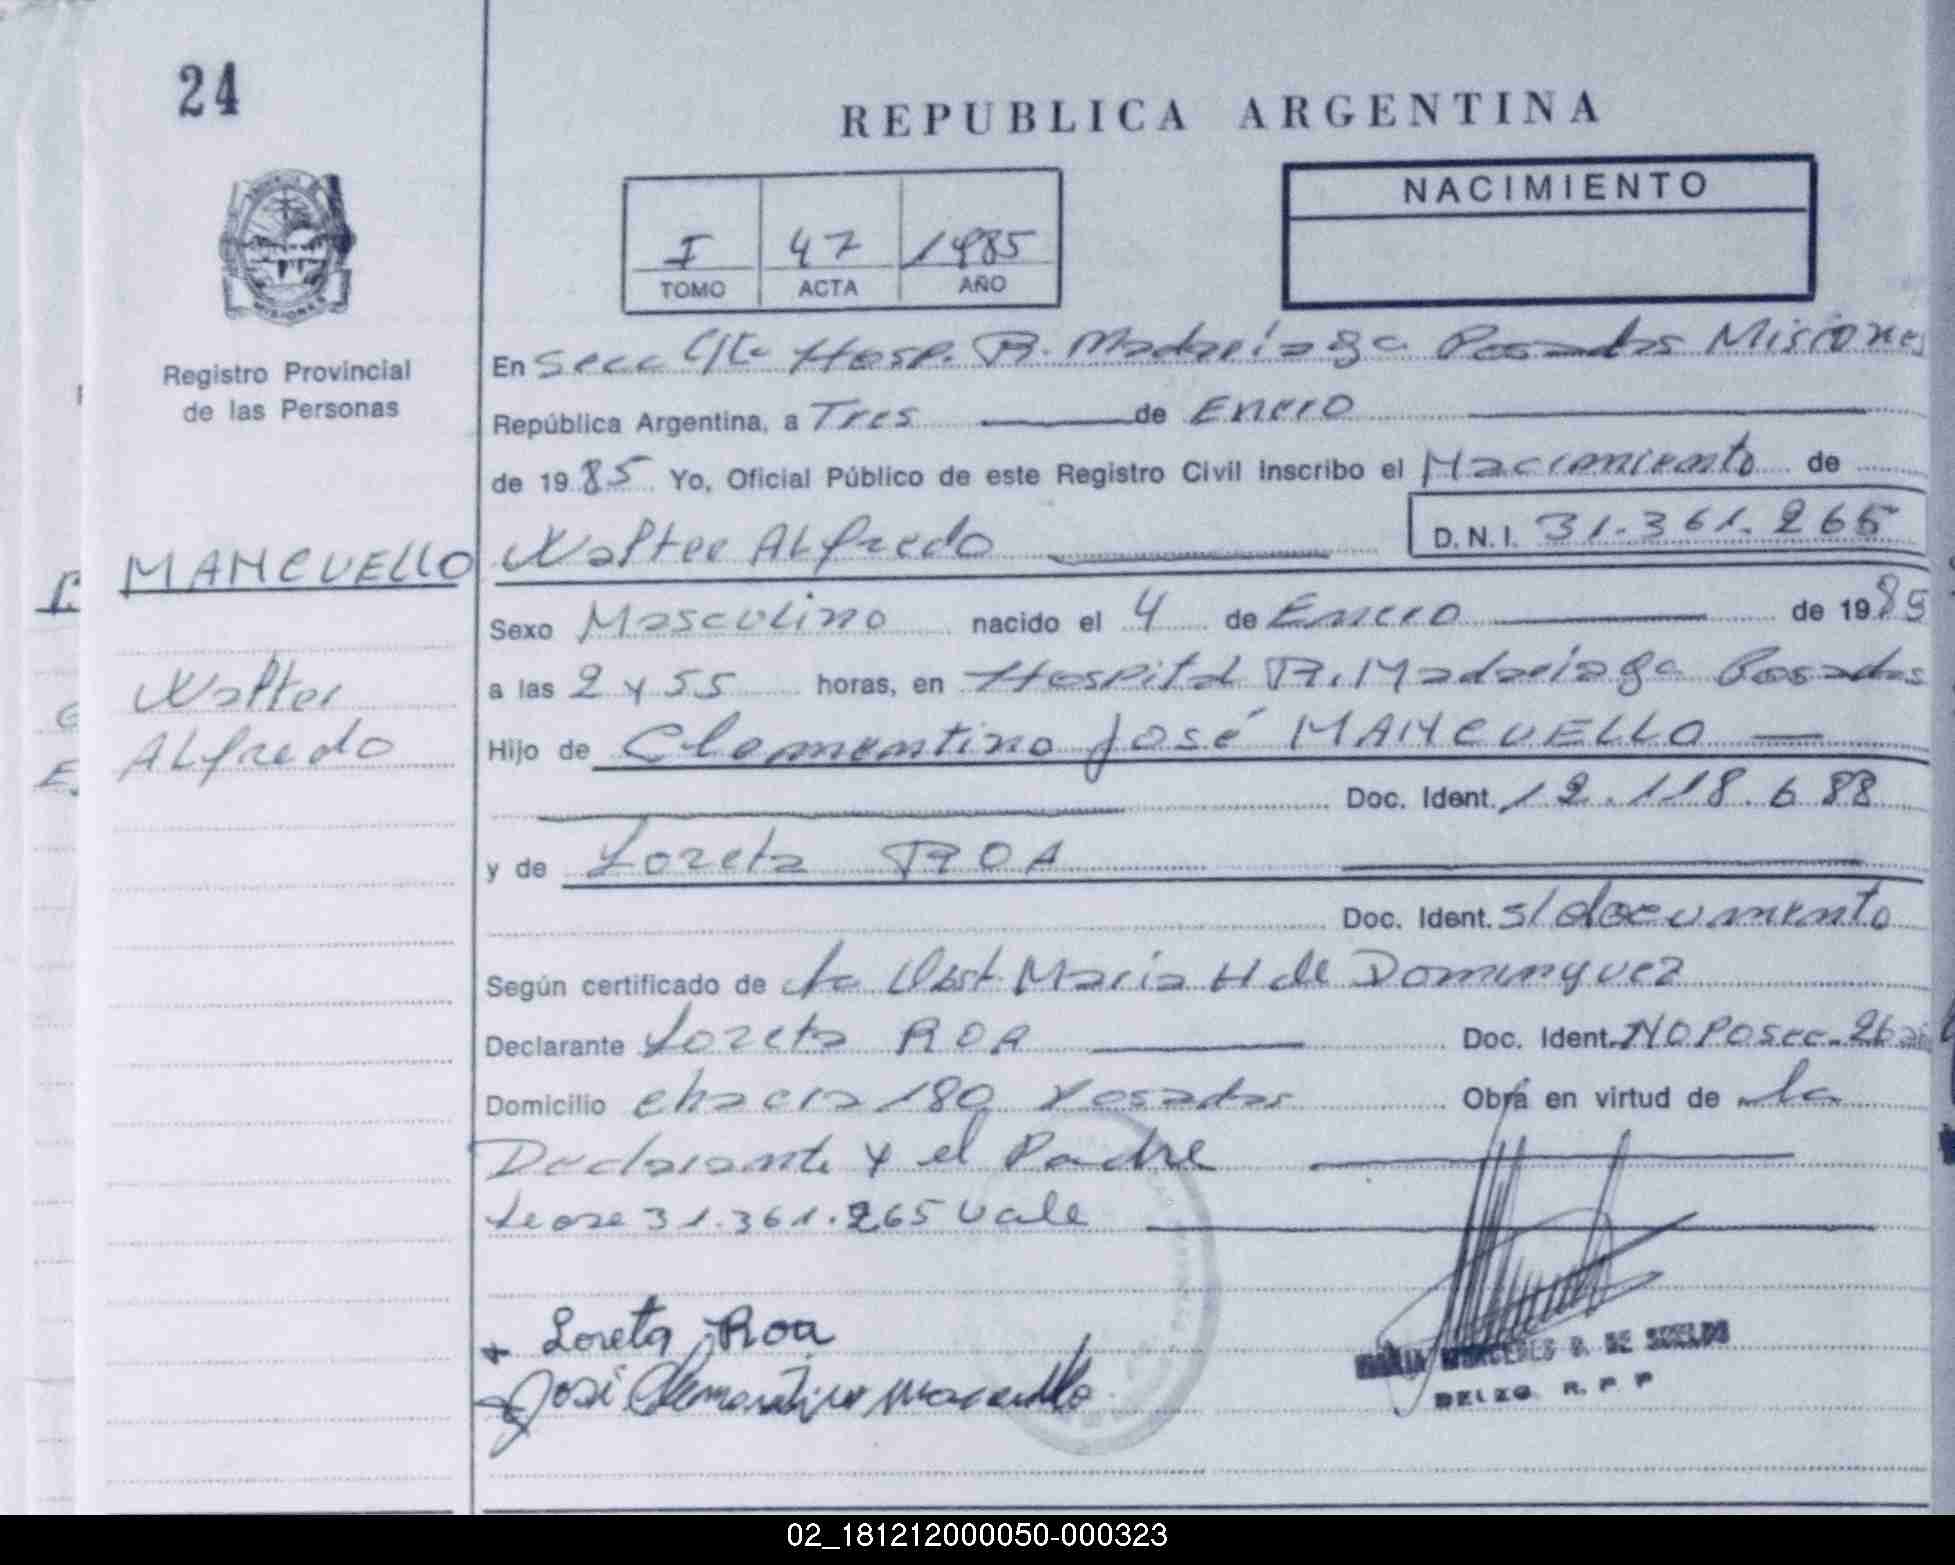 24
REPUBLICA ARGENTINA
I 47 1985
TOMO ACTA AÑO
NACIMIENTO
Registro Provincial
de las Personas
En Secc Hosp. R. Madariaga Posadas Misiones
República Argentina, a Tres de Enero
de 1985 Yo, Oficial Público de este Registro Civil Inscribo el Nacimiento de
D.N.I. 31.361.265
MANCUELLO Walter Alfredo
Sexo Masculino nacido el 4 de Enero de 1985
Walter
Alfredo
a las 2 y 55 horas, en Hospital R. Madariaga Posadas
Hijo de Clementino José MANCUELLO
Doc. Ident. 12.118.688
y de Loreta ROA
Doc. Ident. s/documento
Según certificado de la Obst. Maria H de Dominguez
Declarante Loreta ROA Doc. Ident. NO Posee. 26
Domicilio chacra 180 Posadas Obra en virtud de la
Declarante y el Padre
Lease 31.361.265 vale
Loreta Roa
José Clementino Mancuello
MARIA MERCEDES B. DE
DELEG. R. P. P
02_181212000050-000323